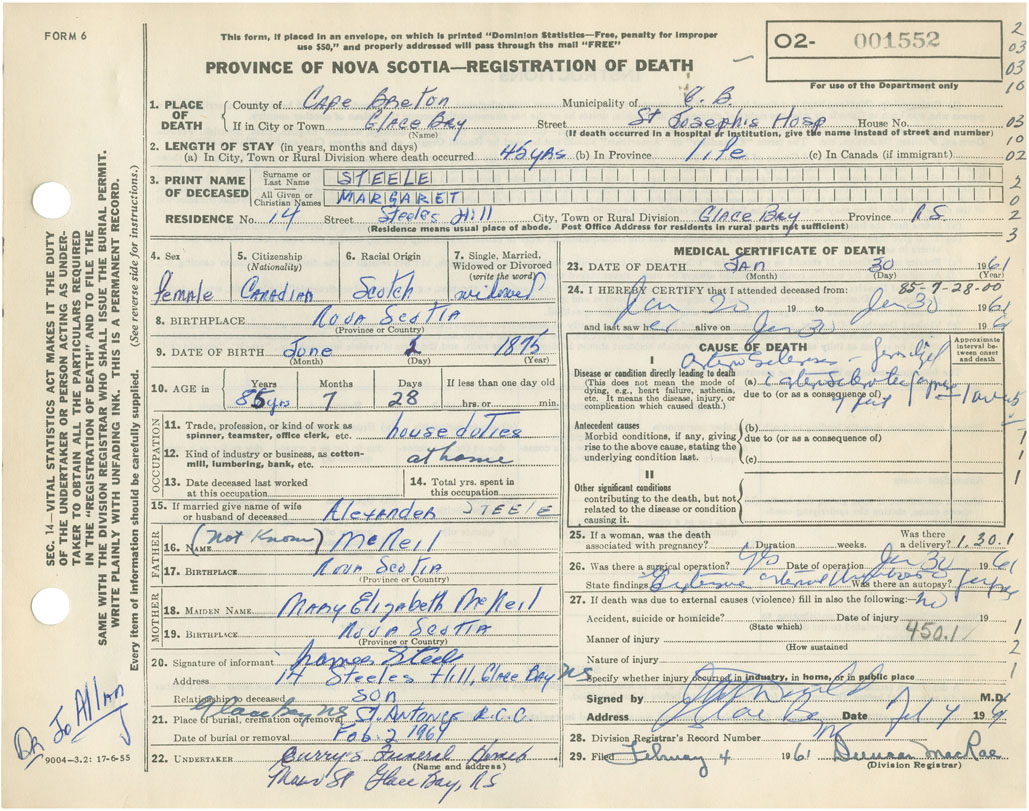 FORM 6
This form, if placed in an envelope, on which is printed "Dominion Statistics—Free, penalty for improper
use $50," and properly addressed will pass through the mail "FREE"
PROVINCE OF NOVA SCOTIA—REGISTRATION OF DEATH
O2- 001552
For use of the Department only
2
03
03
10
03
10
02
2
0
2
3
SEC. 14—VITAL STATISTICS ACT MAKES IT THE DUTY
OF THE UNDERTAKER OR PERSON ACTING AS UNDER-
TAKER TO OBTAIN ALL THE PARTICULARS REQUIRED
IN THE "REGISTRATION OF DEATH" AND TO FILE THE
SAME WITH THE DIVISION REGISTRAR WHO SHALL ISSUE THE BURIAL PERMIT.
WRITE PLAINLY WITH UNFADING INK. THIS IS A PERMANENT RECORD.
Every item of information should be carefully supplied. (See reverse side for instructions.)
1. PLACE OF DEATH
County of Cape Breton Municipality of C. B.
If in City or Town Glace Bay Street St Josephs Hosp House No.
(Name) (If death occurred in a hospital or institution, give the name instead of street and number)
2. LENGTH OF STAY (in years, months and days)
(a) In City, Town or Rural Division where death occurred 45 yrs (b) In Province life (c) In Canada (if immigrant)
3. PRINT NAME OF DECEASED
Surname or Last Name STEELE
All Given or Christian Names MARGARET
RESIDENCE No. 14 Street Steeles Hill City, Town or Rural Division Glace Bay Province N.S.
(Residence means usual place of abode. Post Office Address for residents in rural parts not sufficient)
4. Sex
Female
5. Citizenship (Nationality)
Canadian
6. Racial Origin
Scotch
7. Single, Married, Widowed or Divorced (write the word)
widowed
8. BIRTHPLACE Nova Scotia
(Province or Country)
9. DATE OF BIRTH June 2 1875
(Month) (Day) (Year)
10. AGE in
Years Months Days If less than one day old
85 yrs 7 28 hrs. or min.
OCCUPATION
11. Trade, profession, or kind of work as
spinner, teamster, office clerk, etc. house duties
12. Kind of industry or business, as cotton-
mill, lumbering, bank, etc. at home
13. Date deceased last worked
at this occupation
14. Total yrs. spent in
this occupation
15. If married give name of wife
or husband of deceased Alexander STEELE
FATHER
16. NAME (Not Known) McNeil
17. BIRTHPLACE Nova Scotia
(Province or Country)
MOTHER
18. MAIDEN NAME Mary Elizabeth McNeil
19. BIRTHPLACE Nova Scotia
(Province or Country)
20. Signature of informant James Steele
Address 14 Steeles Hill, Glace Bay NS
Relationship to deceased son
21. Place of burial, cremation or removal Glace Bay NS St Antonys R.C.C.
Date of burial or removal Feb. 2 1961
22. UNDERTAKER Curry's Funeral Home
(Name and address)
Main St Glace Bay, N.S
Dr Jo Allan
9004-3.2: 17-6-55
MEDICAL CERTIFICATE OF DEATH
23. DATE OF DEATH Jan 30 1961
(Month) (Day) (Year)
24. I HEREBY CERTIFY that I attended deceased from: 85-7-28-00
Jan 20 19 to Jan 30 1961
and last saw her alive on Jan 30 1961
CAUSE OF DEATH
Approximate interval between onset and death
I
Disease or condition directly leading to death
(This does not mean the mode of
dying, e.g., heart failure, asthenia,
etc. It means the disease, injury, or
complication which caused death.)
(a)
due to (or as a consequence of)
Antecedent causes
Morbid conditions, if any, giving
rise to the above cause, stating the
underlying condition last.
(b)
due to (or as a consequence of)
(c)
II
Other significant conditions
contributing to the death, but not
related to the disease or condition
causing it.
25. If a woman, was the death
associated with pregnancy? Duration weeks. Was there
a delivery? 1.30.1
26. Was there a surgical operation? yes Date of operation Jan 30 1961
State findings Was there an autopsy?
27. If death was due to external causes (violence) fill in also the following:— no
Accident, suicide or homicide? Date of injury 19
(State which) 450.1
Manner of injury
(How sustained
Nature of injury
Specify whether injury occurred in industry, in home, or in public place
Signed by M.D.
Address Glace Bay Date Feb 4 19
28. Division Registrar's Record Number
29. Filed February 4 1961 Duncan MacRae
(Division Registrar)